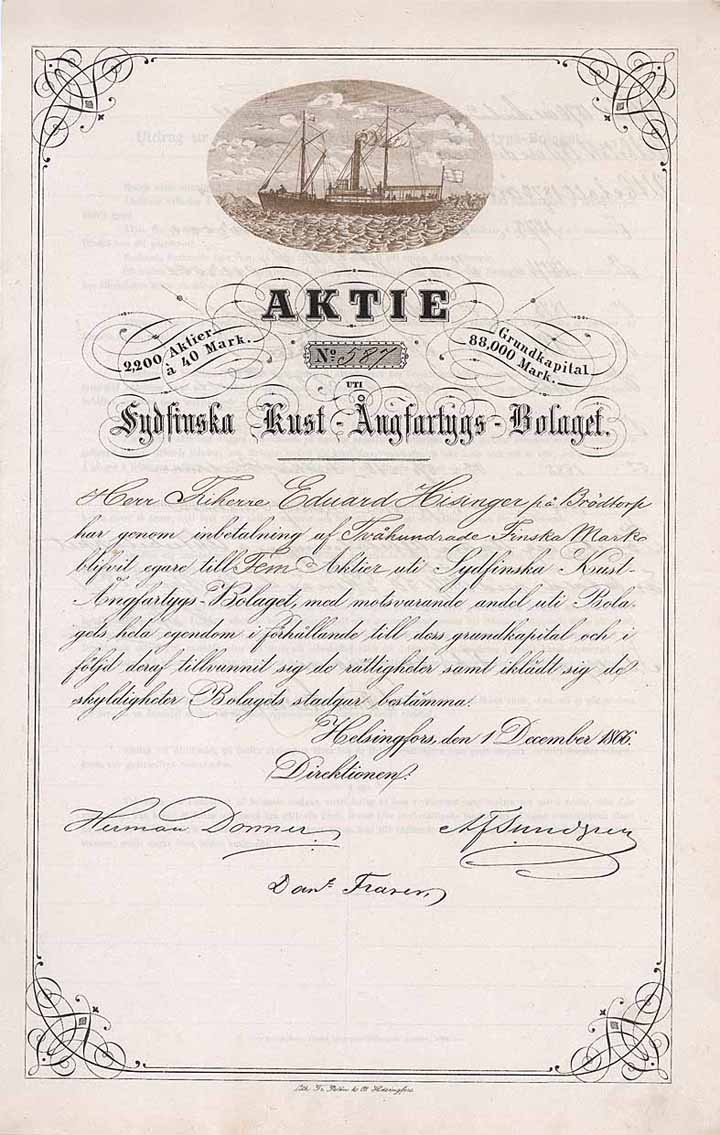 AKTIE
2,200 Aktier
à 40 Mark.
No 587
Grundkapital
88,000 Mark.
UTI
Sydfinska Kust-Ångfartygs-Bolaget.
Herr Friherre Eduard Hisinger på Brödtorp
har genom inbetalning af Tvåhundrade Finska Mark
blifvit egare till Fem Aktier uti Sydfinska Kust-
Ångfartygs-Bolaget, med motsvarande andel uti Bola-
gets hela egendom i förhållande till dess grundkapital och i
följd deraf tillvunnit sig de rättigheter samt iklädt sig de
skyldigheter Bolagets stadgar bestämma.
Helsingfors, den 1 December 1866.
Direktionen:
Herman Donner
AF Sundgren
Danl
Lith. Helsingfors.